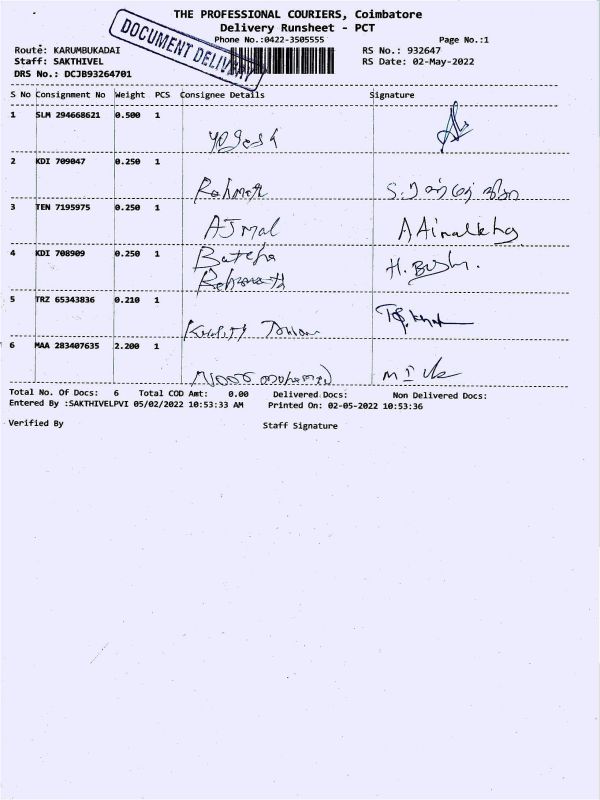 THE PROFESSIONAL COURIERS, Coimbatore
Delivery Runsheet - PCT
DOCUMENT DELIVERY
Phone No.:0422-3505555 Page No.:1
Route: KARUMBUKADAI RS No.: 932647
Staff: SAKTHIVEL RS Date: 02-May-2022
DRS No.: DCJB93264701
S No Consignment No Weight PCS Consignee Details Signature
1 SLM 294668621 0.500 1
Yogesh
2 KDI 709047 0.250 1
Rahmath
3 TEN 7195975 0.250 1
AJmal
4 KDI 708909 0.250 1 Batcha
5 TRZ 65343836 0.210 1
6 MAA 283407635 2.200 1
Total No. Of Docs: 6 Total COD Amt: 0.00 Delivered Docs: Non Delivered Docs:
Entered By :SAKTHIVELPVI 05/02/2022 10:53:33 AM Printed On: 02-05-2022 10:53:36
Verified By Staff Signature